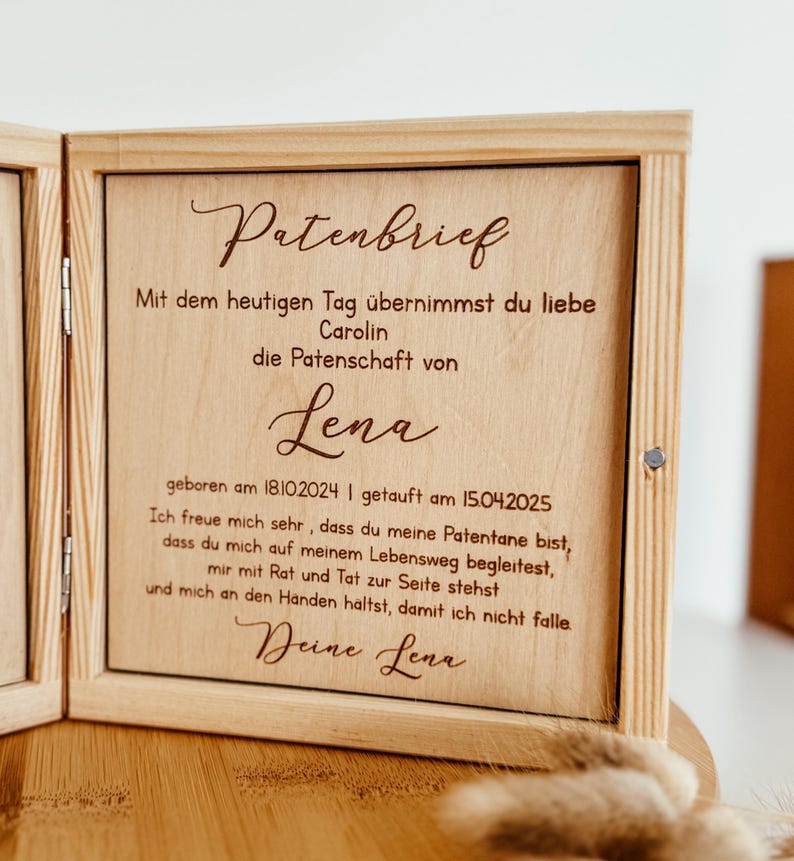 Patenbrief
Mit dem heutigen Tag übernimmst du liebe
Carolin
die Patenschaft von
Lena
geboren am 18.10.2024 | getauft am 15.04.2025
Ich freue mich sehr , dass du meine Patentane bist,
dass du mich auf meinem Lebensweg begleitest,
mir mit Rat und Tat zur Seite stehst
und mich an den Händen hältst, damit ich nicht falle.
Deine Lena